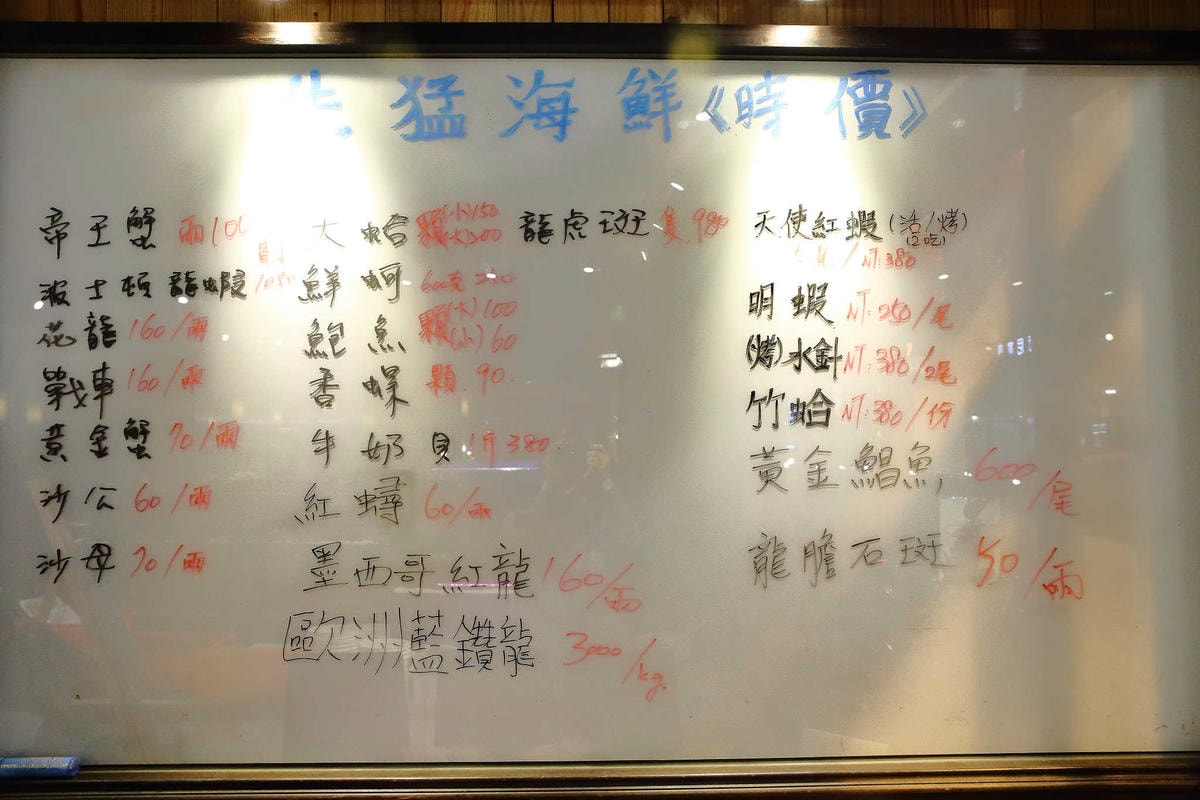 生猛海鮮《時價》
帝王蟹 兩/10
波士頓龍蝦
花龍 160/兩
戰車 160/兩
黃金蟹 70/兩
沙公 60/兩
沙母 70/兩
大蛤 顆(小)150
(大)200
鮮蚵 600克
鮑魚 顆(大)100
(小)60
香螺 顆.90.
牛奶貝 1斤380.
紅蟳 60/兩
墨西哥紅龍 160/兩
歐洲藍鑽龍 3000/kg.
龍虎斑 隻.980
天使紅蝦(活/烤)
(2吃)
/NT:380
明蝦 NT:250/尾
(烤)水針 NT:380/2尾
竹蛤 NT:380/份
黃金鯧魚, 600/尾
龍膽石斑 50/兩